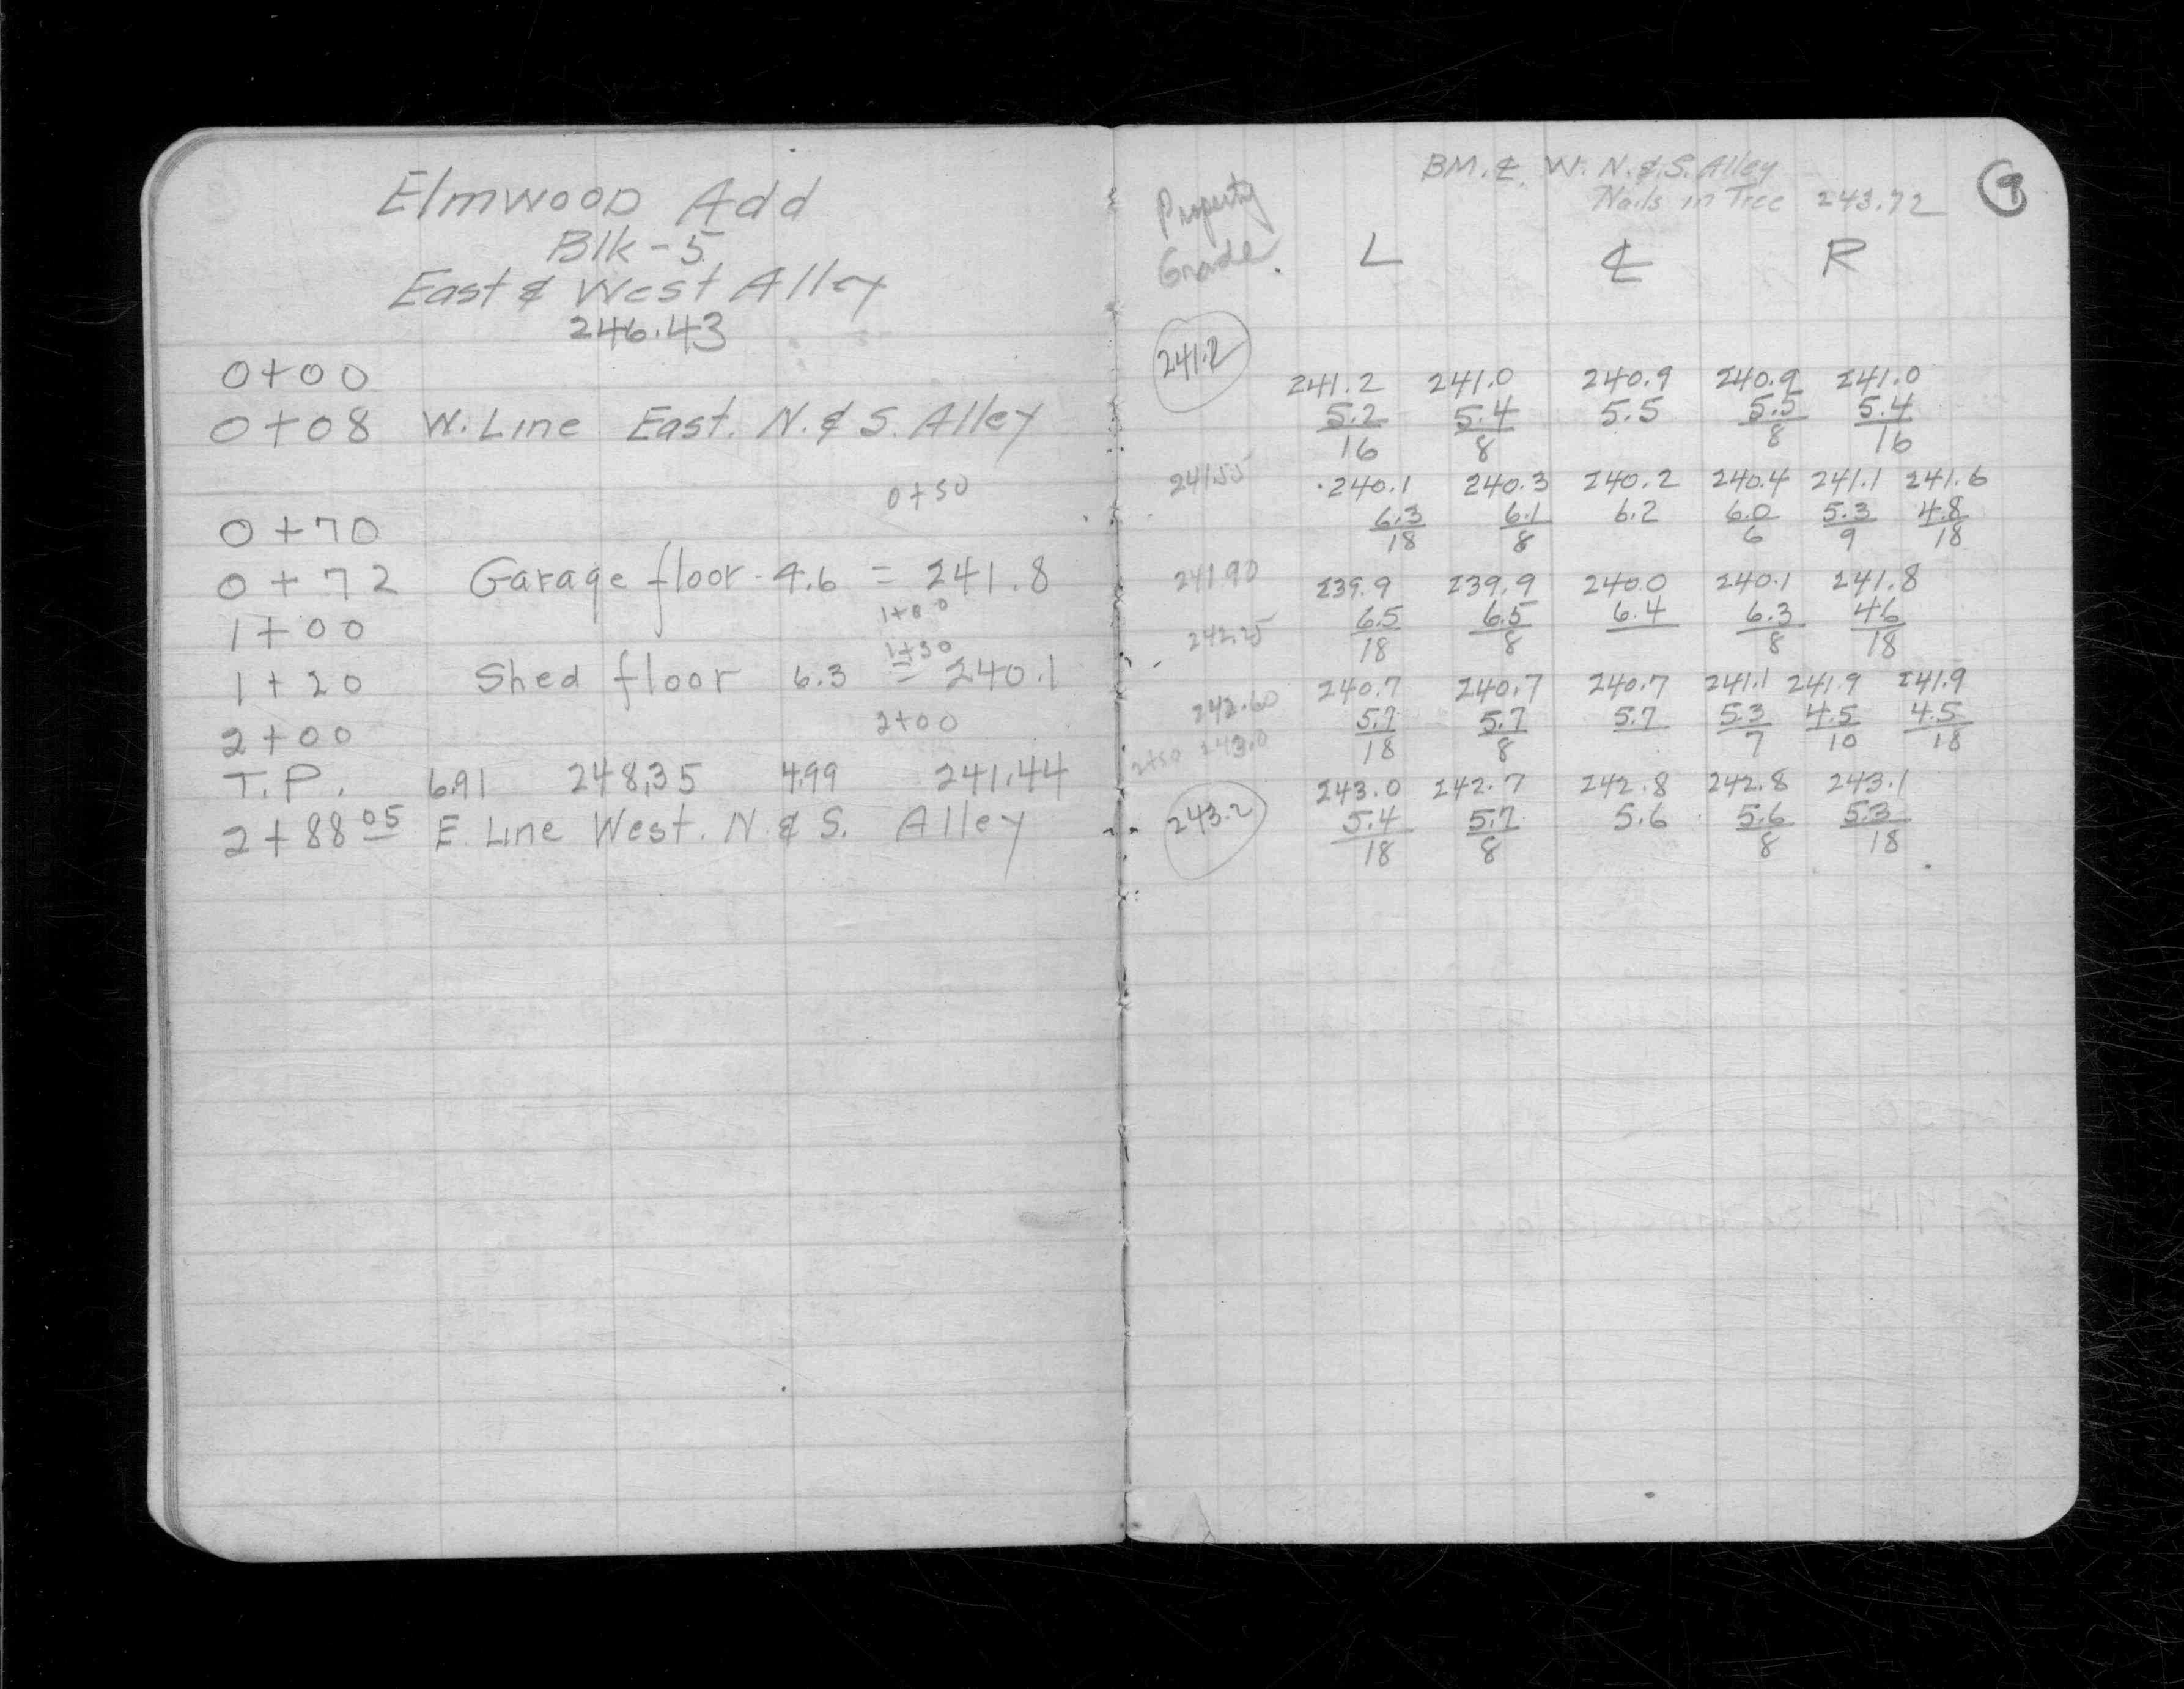 Elmwood Add
Blk-5
East & West Alley
246.43
0+00
0+08 W. Line East. N. & S. Alley
0+50
0+70
0+72 Garage floor - 4.6 = 241.8
1+00
1+00
1+50
1+20 Shed floor 6.3 = 240.1
2+00
2+00
T.P. 6.91 248.35 4.99 241.44
2+88 05 E. Line West. N. & S. Alley
BM. ℄. W. N. & S. Alley
Nails in Tree 243.72
9
Property
Grade. L ℄ R
241.2
241.2 241.0 240.9 240.9 241.0
5.2 5.4 5.5 5.5 5.4
16 8 8 16
241.55 240.1 240.3 240.2 240.4 241.1 241.6
6.3 6.1 6.2 6.0 5.3 4.8
18 8 6 9 18
241.90 239.9 239.9 240.0 240.1 241.8
242.25 6.5 6.5 6.4 6.3 4.6
18 8 8 18
242.60 240.7 240.7 240.7 241.1 241.9 241.9
5.7 5.7 5.7 5.3 4.5 4.5
2+50 243.0 18 8 7 10 18
243.0 242.7 242.8 242.8 243.1
243.2 5.4 5.7 5.6 5.6 5.3
18 8 8 18